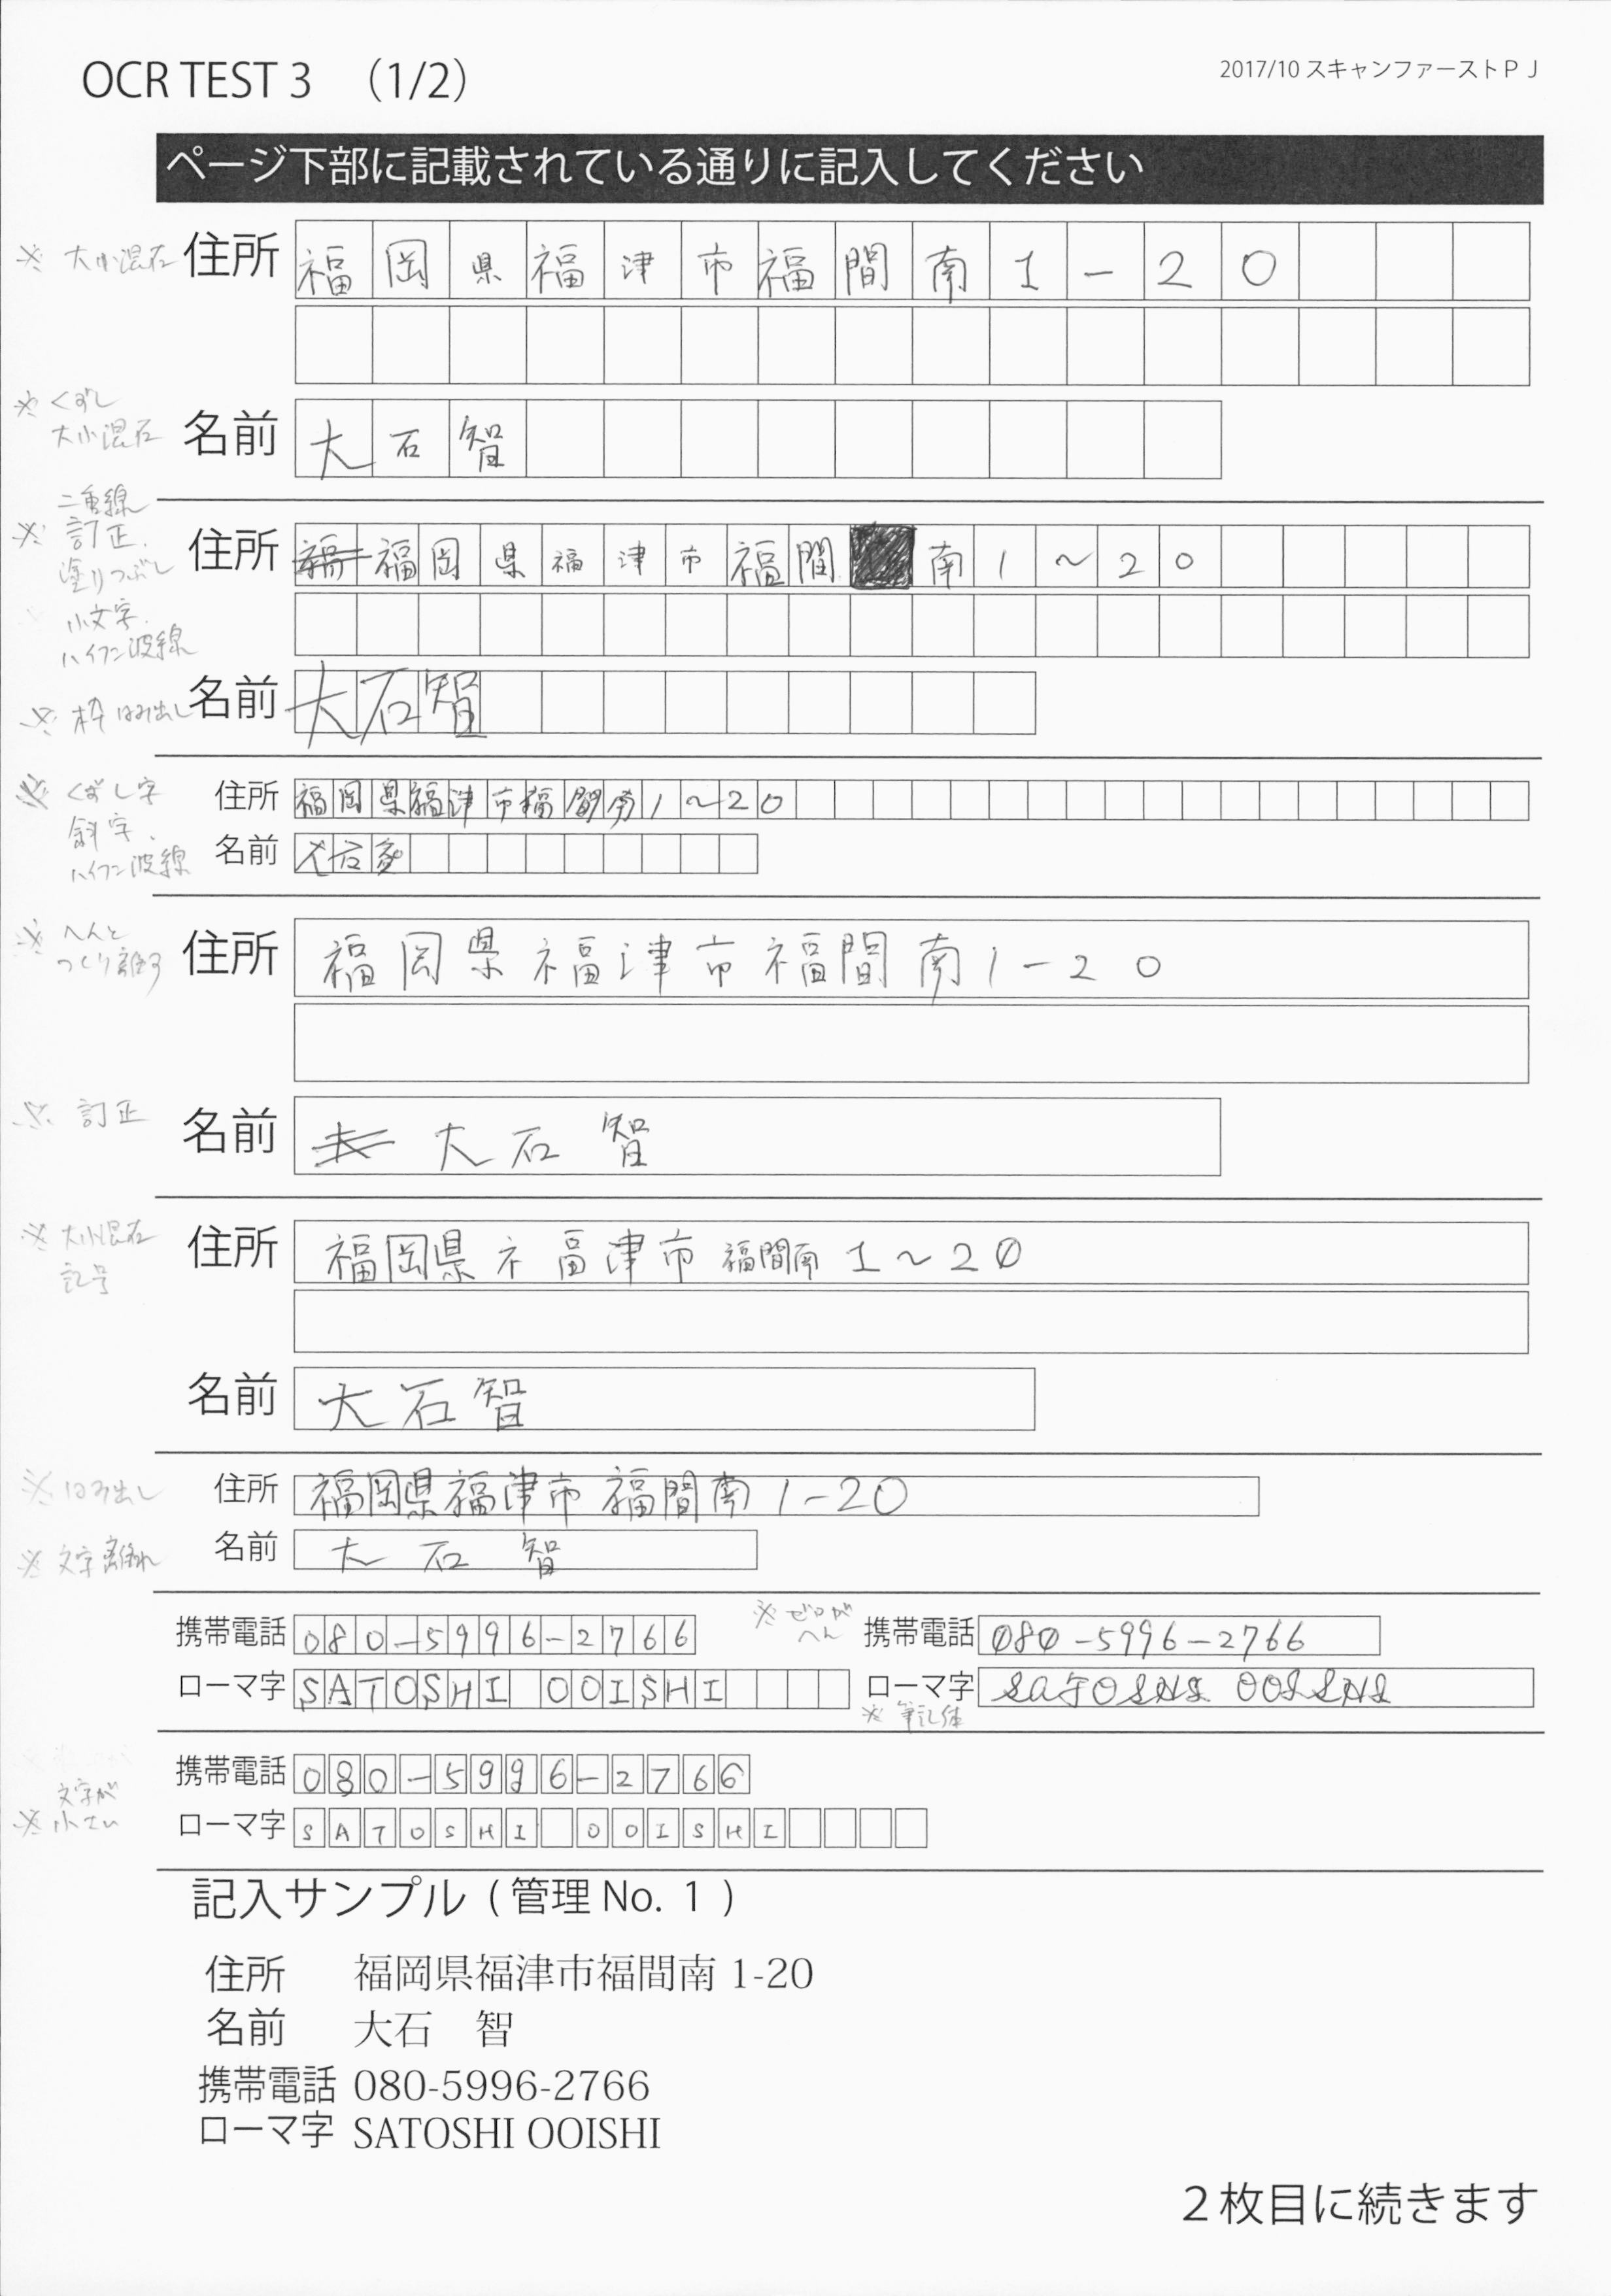 OCR TEST 3 （1/2）
2017/10 スキャンファーストＰＪ
ページ下部に記載されている通りに記入してください
※ 大小混在 住所 福岡県福津市福間南1-20
※ くずし
大小混在
名前 大石智
二重線
※ 訂正.
塗りつぶし
小文字.
ハイフン波線
住所 福福岡県福津市福間南1～20
※ 枠はみ出し 名前 大石智
※ くずし字
斜字.
ハイフン波線
住所 福岡県福津市福間南1～20
名前 大石智
※ へんと
つくり離す
住所 福岡県福津市福間南1-20
※ 訂正 名前 大大石智
※ 大小混在
記号
住所 福岡県ネ畐津市福間南1～20
名前 大石智
※ はみ出し 住所 福岡県福津市福間南1-20
※ 文字離れ 名前 大石智
携帯電話 080-5996-2766
※ ゼロが
へん
携帯電話 080-5996-2766
ローマ字 SATOSHI OOISHI
ローマ字 SATOSHI OOISHI
※ 筆記体
携帯電話 080-5996-2766
文字が
※ 小さい
ローマ字 SATOSHI OOISHI
記入サンプル（管理 No. 1 ）
住所 福岡県福津市福間南 1-20
名前 大石 智
携帯電話 080-5996-2766
ローマ字 SATOSHI OOISHI
２枚目に続きます